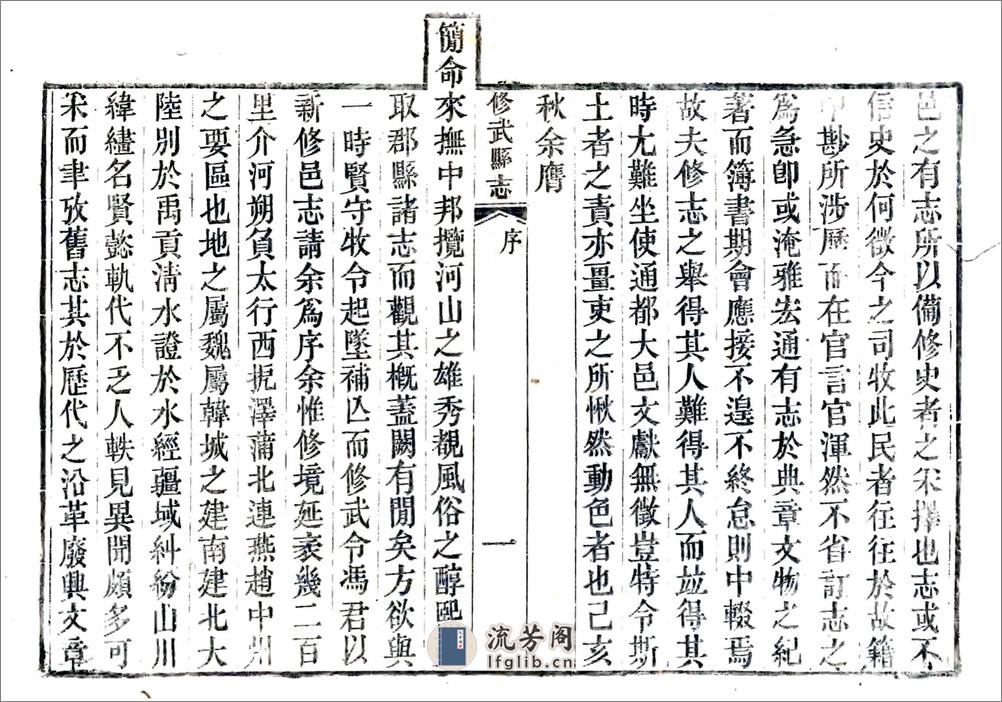 邑之有志所以備修史者之采擇也志或不
信史於何徵今之司牧此民者往往於故籍
尠所涉歷而在官言官渾然不省訂志之
爲急卽或淹雅宏通有志於典章文物之紀
著而簿書期會應接不遑不終怠則中輟焉
故夫修志之舉得其人難得其人而並得其
時尤難坐使通都大邑文獻無徵豈特令斯
土者之責亦畺吏之所愀然動色者也己亥
秋余膺
修武縣志
序
一
簡命來撫中邦攬河山之雄秀覩風俗之醇熙
取郡縣諸志而觀其槪蓋闕有閒矣方欲與
一時賢守牧令起墜補亾而修武令馮君以
新修邑志請余爲序余惟修境延袤幾二百
里介河朔負太行西扼澤蒲北連燕趙中州
之要區也地之屬魏屬韓城之建南建北大
陸別於禹貢淸水證於水經疆域糾紛山川
緯繣名賢懿軌代不乏人軼見異聞頗多可
采而聿攷舊志其於歷代之沿革廢興文章
流芳阁
lfglib.cn